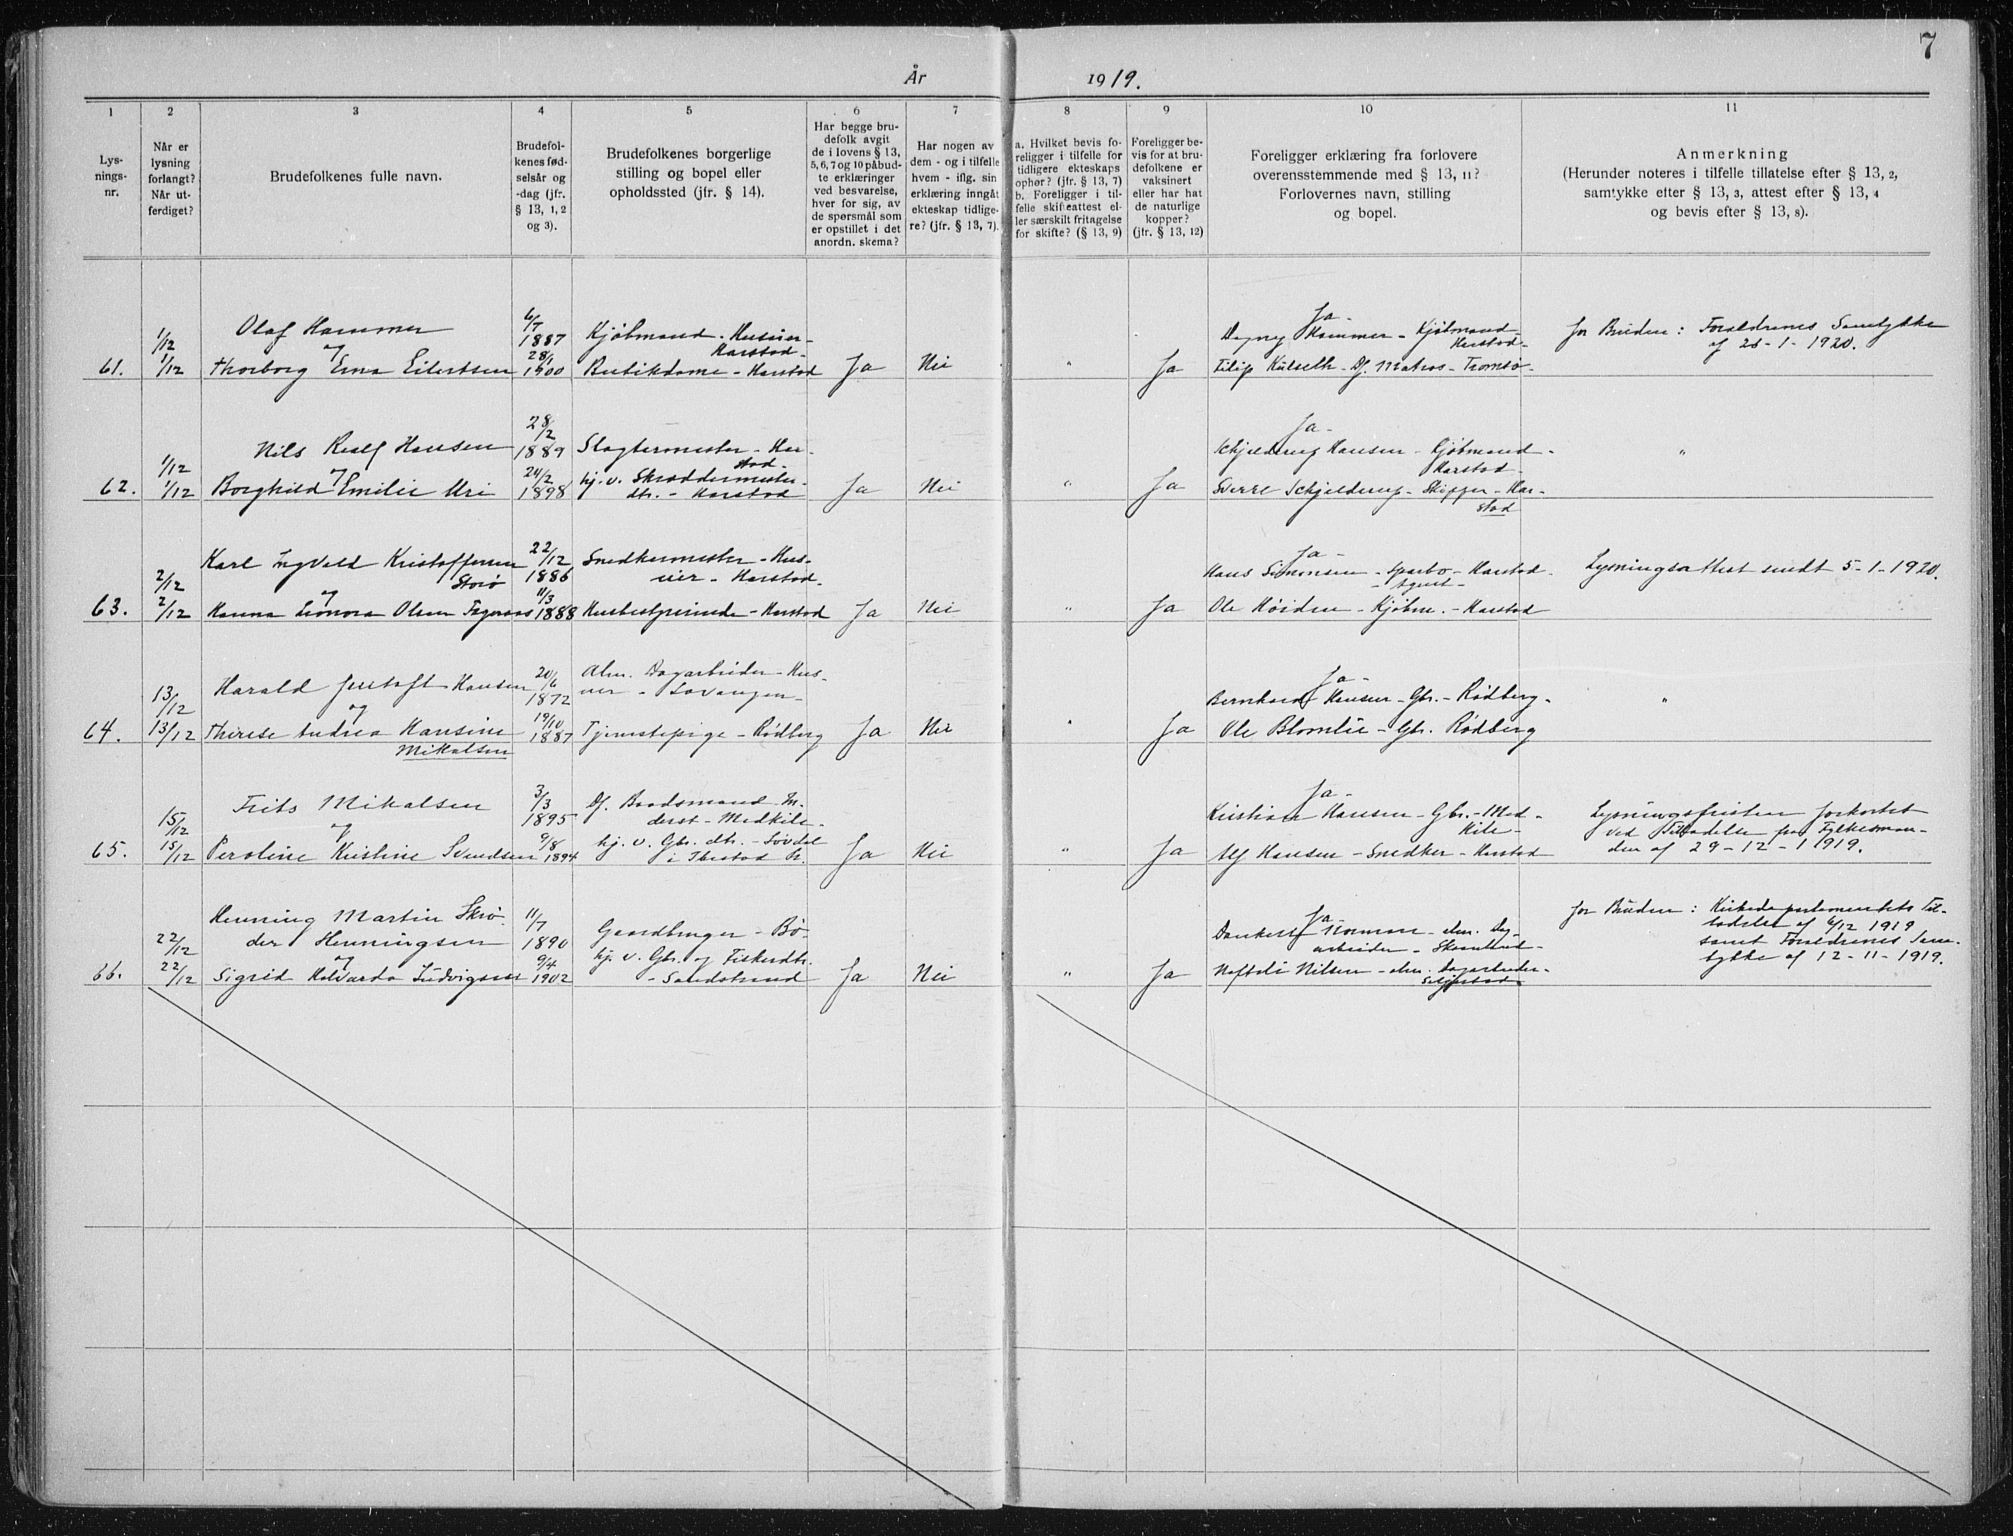 7
År 1919.
1 2 3 4 5 6 7 8 9 10 11
Lys-
nings-
nr.
Når er
lysning
forlangt?
Når ut-
ferdiget?
Brudefolkenes fulle navn.
Brudefol-
kenes fød-
selsår og
-dag (jfr.
§ 13, 1, 2
og 3).
Brudefolkenes borgerlige
stilling og bopel eller
opholdssted (jfr. § 14).
Har begge bru-
defolk avgit
de i lovens § 13,
5, 6, 7 og 10 påbud-
te erklæringer
ved besvarelse,
hver for sig, av
de spørsmål som
er opstillet i det
anordn. skema?
Har nogen av
dem - og i tilfelle
hvem - iflg. sin
erklæring inngåt
ekteskap tidlige-
re? (jfr. § 13, 7).
a. Hvilket bevis fo-
religger i tilfelle for
tidligere ekteskaps
ophør? (jfr. § 13, 7)
b. Foreligger i til-
felle skifteattest el-
ler særskilt fritagelse
for skifte? (§ 13, 9)
Foreligger be-
vis for at bru-
defolkene er
vaksinert
eller har hat
de naturlige
kopper?
(jfr. § 13, 12)
Foreligger erklæring fra forlovere
overensstemmende med § 13, 11?
Forlovernes navn, stilling
og bopel.
Anmerkning
(Herunder noteres i tilfelle tillatelse efter § 13, 2,
samtykke efter § 13, 3, attest efter § 13, 4
og bevis efter § 13, 8).
61.
1/12
1/12
Olaf Hammer
og
Thorborg Erna Eilertsen
6/7
1887
28/1
1900
Kjøbmand - Husvær -
Harstad -
Butikdame - Harstad
Ja
Nei
"
Ja
Ja -
Dagny Hammer - Kjøbmand -
Harstad -
Filip Kulseth - Df. Matros - Tromsø -
for Bruden: Forældrenes Samtykke
af 28-1-1920.
62.
1/12
1/12
Nils Realf Hansen
og
Borghild Emilie Uri
28/2
1889
24/2
1898
Slagtermester - Har-
stad -
hj. v. Skræddermester-
dtr. - Harstad
Ja
Nei
"
Ja
Ja -
Schjelderup Hansen - Gjøbmand -
Harstad -
Sverre Schjelderup - Skipper - Har-
stad
"
63.
2/12
2/12
Karl Ingvald Kristoffersen
Storø
og
Hanna Leonora Olsen Fagernæs
22/12
1886
11/3
1888
Snedkermester - Hus-
vær - Harstad -
Husbestyrerinde - Harstad
Ja
Nei
"
Ja
Ja -
Hans Simonsen - Sparbo - Harstad -
- Agent -
Ole Høiden - Kjøbm. - Harstad
Lysningsattest sendt 5-1-1920.
64.
13/12
13/12
Harald Jentoft Hansen
og
Therese Andrea Hansine
Mikalsen
20/6
1872
19/10
1887
Alm. Dagarbeider - Hus-
vær - Lavangen -
Tjenestepige - Rødberg
Ja
Nei
"
Ja
Ja -
Bernhard Hansen - Gbr. - Rødberg -
Ole Blomlie - Gbr. Rødberg
"
65.
15/12
15/12
Frits Mikalsen
og
Peroline Kristine Svendsen
3/3
1895
9/8
1894
Df. Baadsmand Tr.
derst - Medkile -
hj. v. Gbr. dtr. - Løvdal
i Ibestad H.
Ja
Nei
"
Ja
Ja -
Kristian Hansen - Gbr. - Med-
kile -
Alf Hansen - Snedker - Harstad
Lysningsfristen forkortet
ved Tilladelse fra Fylkesman-
den af 29-12-1919.
66.
22/12
22/12
Henning Martin Skrø-
der Henningsen
og
Sigrid Halvarda Ludvigsen
11/7
1890
9/4
1902
Gaardbruger - Bø -
hj. v. Gbr. og Fiskerdtr.
- Sandstrand
Ja
Nei
"
Ja
Ja -
Dankert Norman - alm. Dag-
arbeider - Skaanland -
Naftali Nilsen - alm. Dagarbeider -
for Bruden: Kirkedepartementets Til-
ladelse af 6/12 1919
samt Forældrenes Sam-
tykke af 12-11-1919.